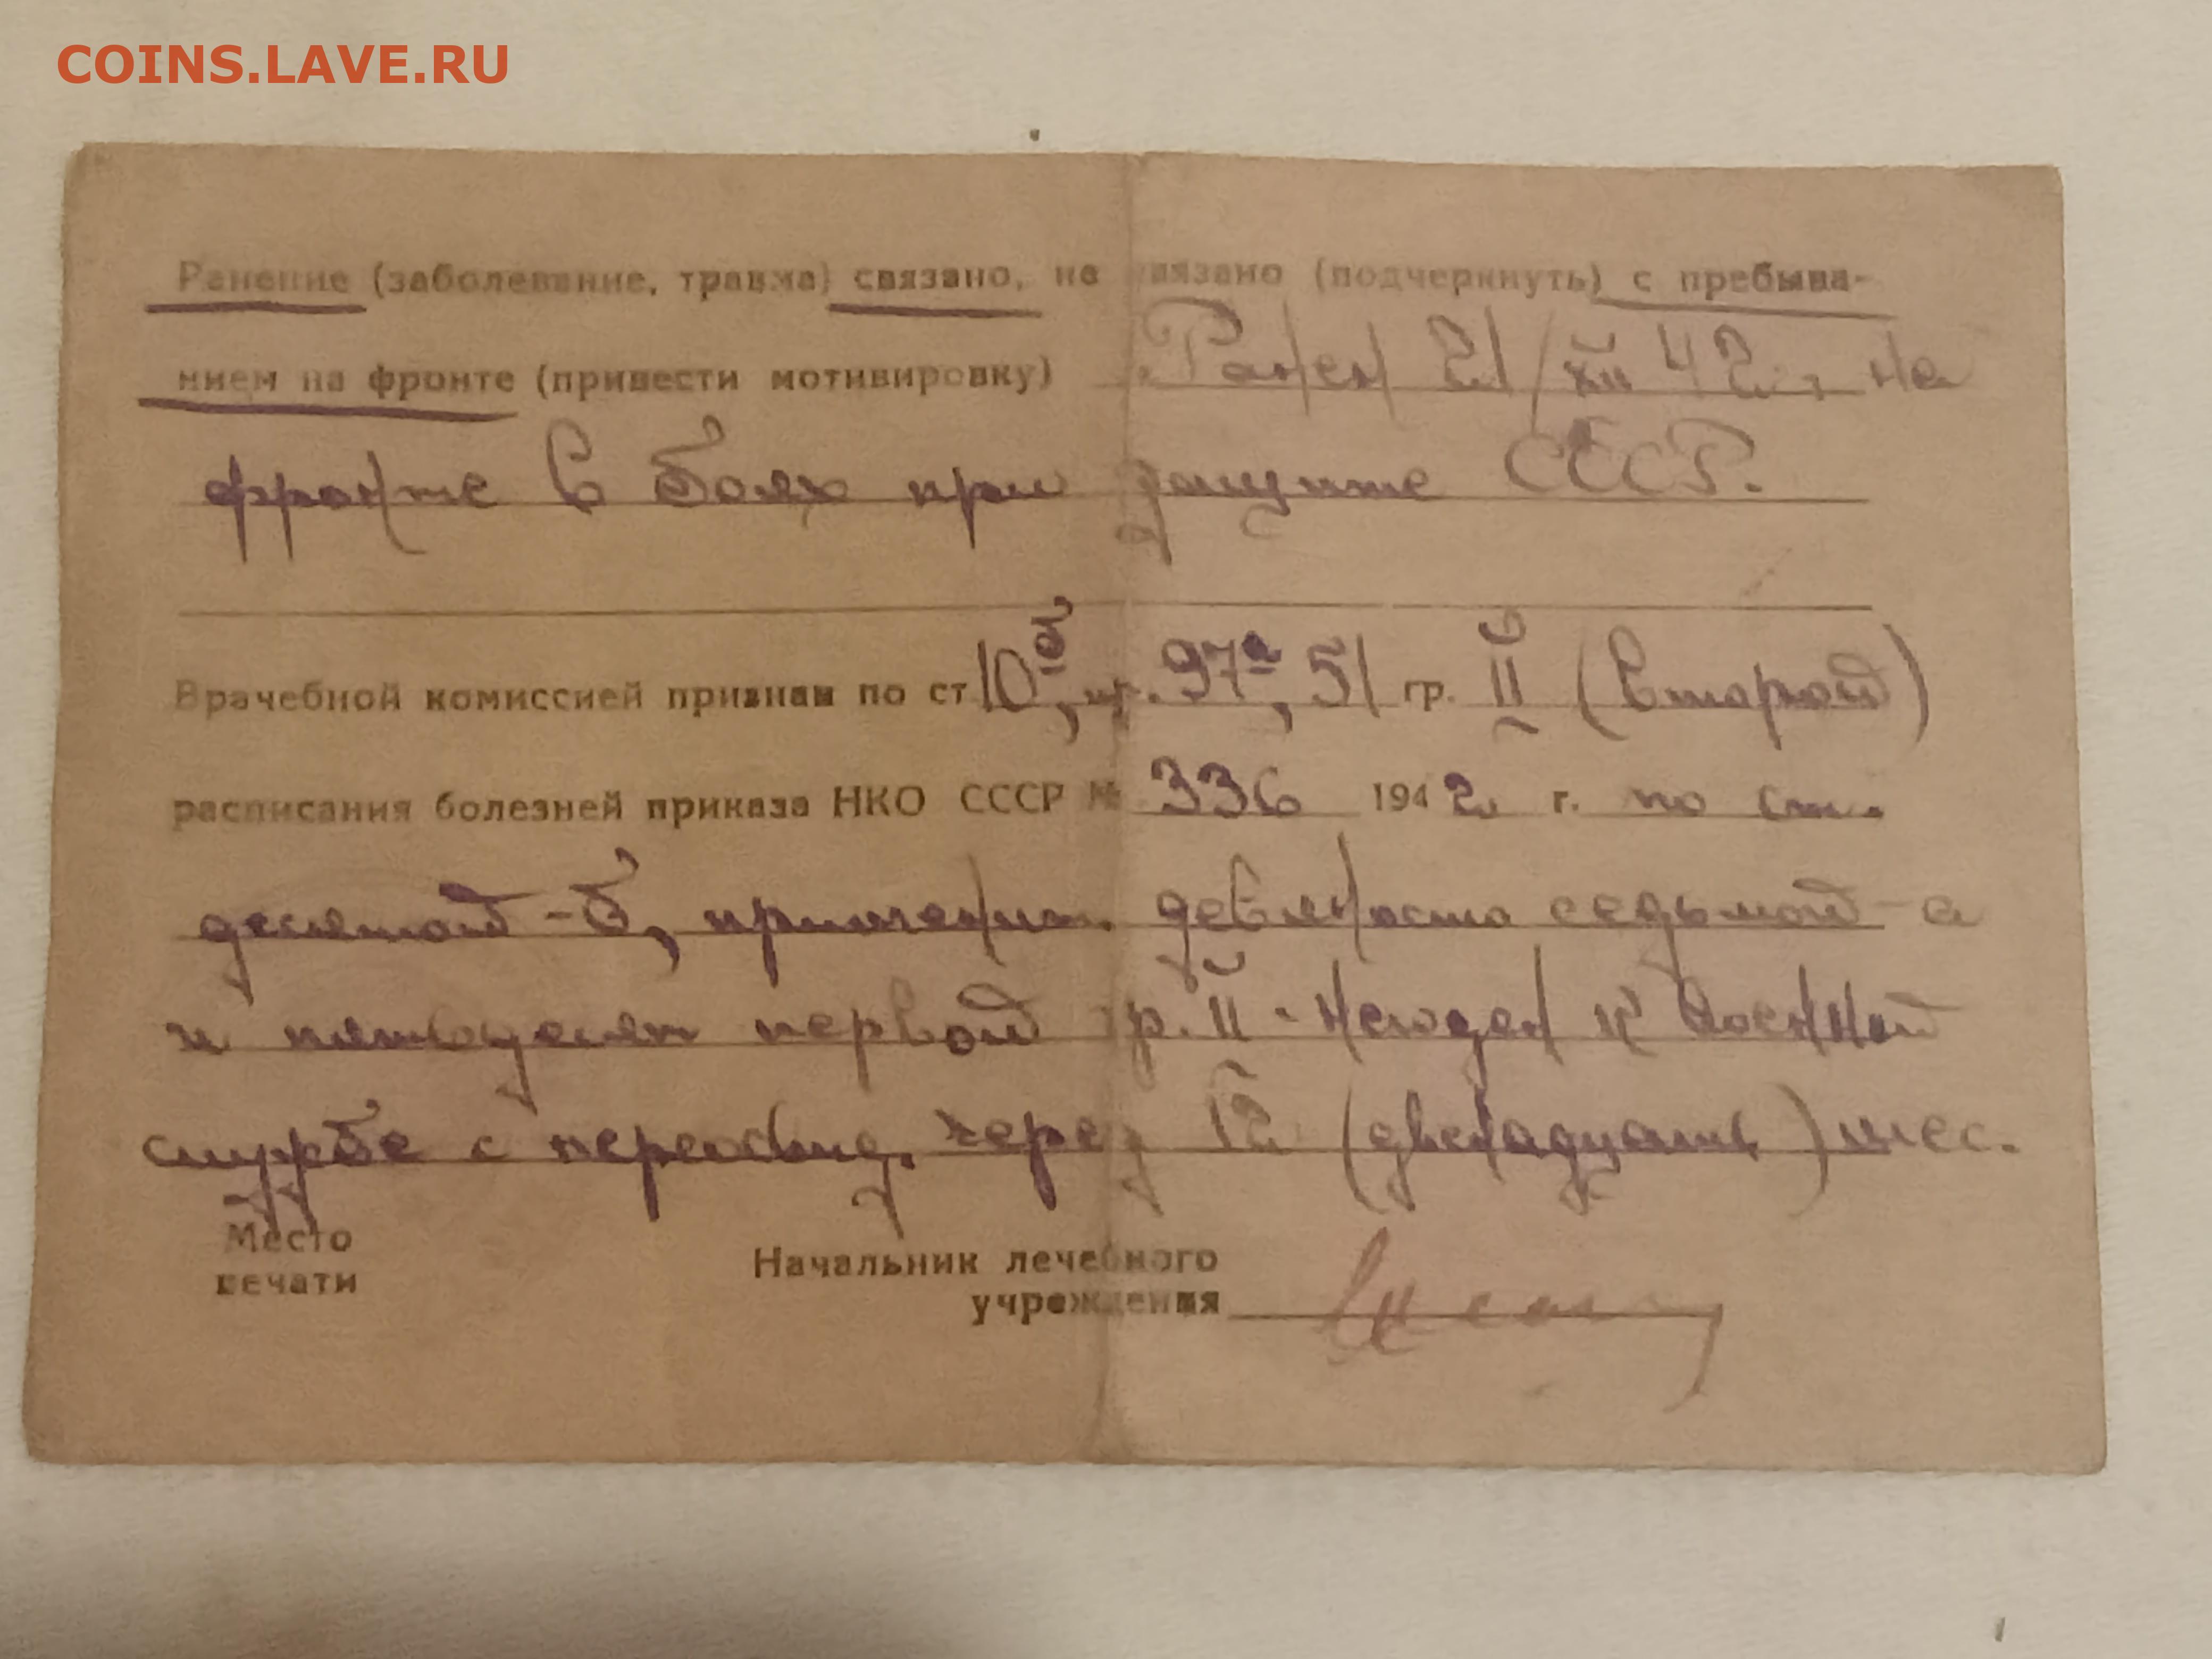 COINS.LAVE.RU
Ранение (заболевание, травма) связано, не связано (подчеркнуть) с пребыва-
нием на фронте (привести мотивировку) Ранен 21/XII 42 г. на
фронте в боях при защите СССР.
Врачебной комиссией признан по ст. 10б, пр. 97а, 51 гр. II (второй)
расписания болезней приказа НКО СССР № 336 1942 г. по ст.
десятой -б, применит. девяносто седьмой -а
и пятьдесят первой гр. II - негоден к военной
службе с переосвид. через 12 (двенадцать) мес.
Место
печати
Начальник лечебного
учреждения